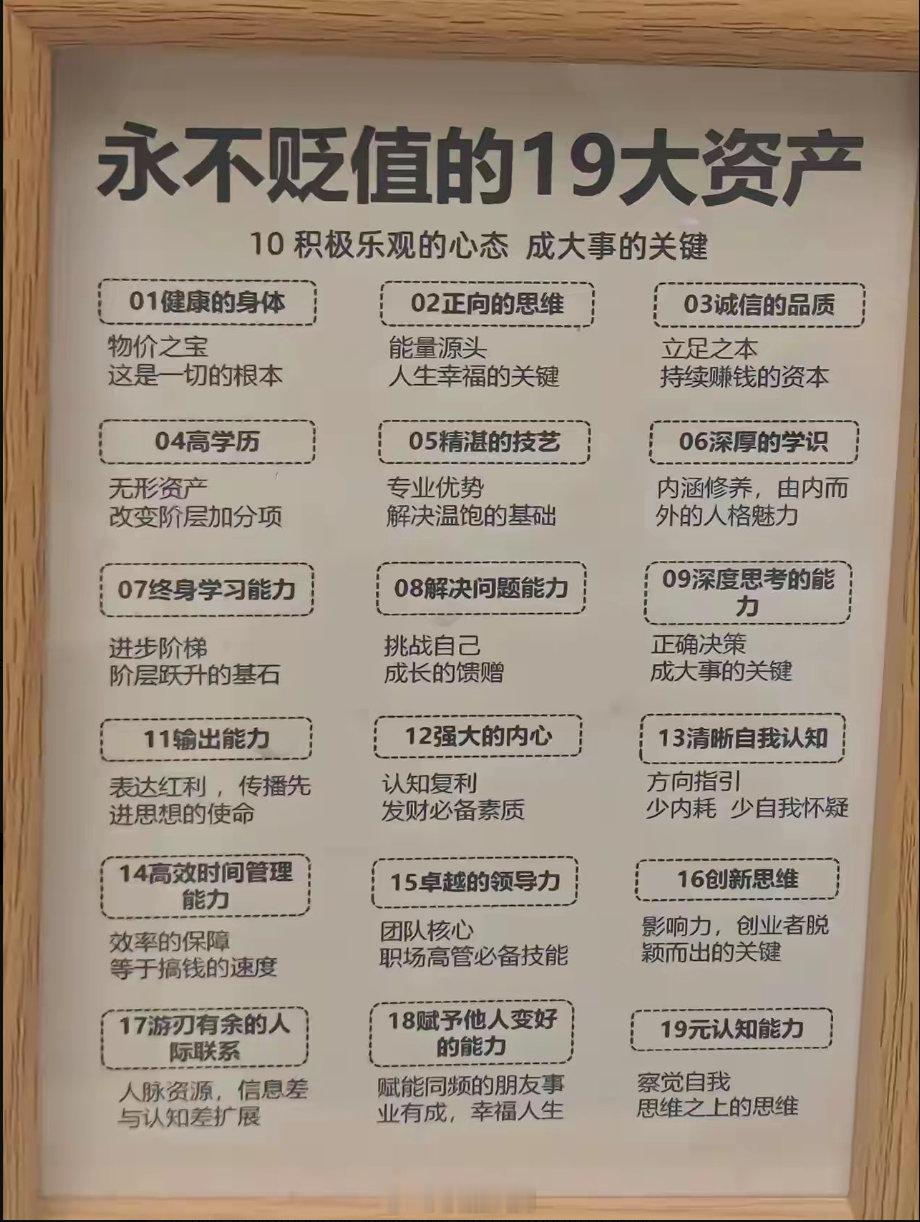 永不贬值的19大资产
10 积极乐观的心态 成大事的关键
01健康的身体
物价之宝
这是一切的根本
02正向的思维
能量源头
人生幸福的关键
03诚信的品质
立足之本
持续赚钱的资本
04高学历
无形资产
改变阶层加分项
05精湛的技艺
专业优势
解决温饱的基础
06深厚的学识
内涵修养，由内而
外的人格魅力
07终身学习能力
进步阶梯
阶层跃升的基石
08解决问题能力
挑战自己
成长的馈赠
09深度思考的能
力
正确决策
成大事的关键
11输出能力
表达红利，传播先
进思想的使命
12强大的内心
认知复利
发财必备素质
13清晰自我认知
方向指引
少内耗 少自我怀疑
14高效时间管理
能力
效率的保障
等于搞钱的速度
15卓越的领导力
团队核心
职场高管必备技能
16创新思维
影响力，创业者脱
颖而出的关键
17游刃有余的人
际联系
人脉资源，信息差
与认知差扩展
18赋予他人变好
的能力
赋能同频的朋友事
业有成，幸福人生
19元认知能力
察觉自我
思维之上的思维